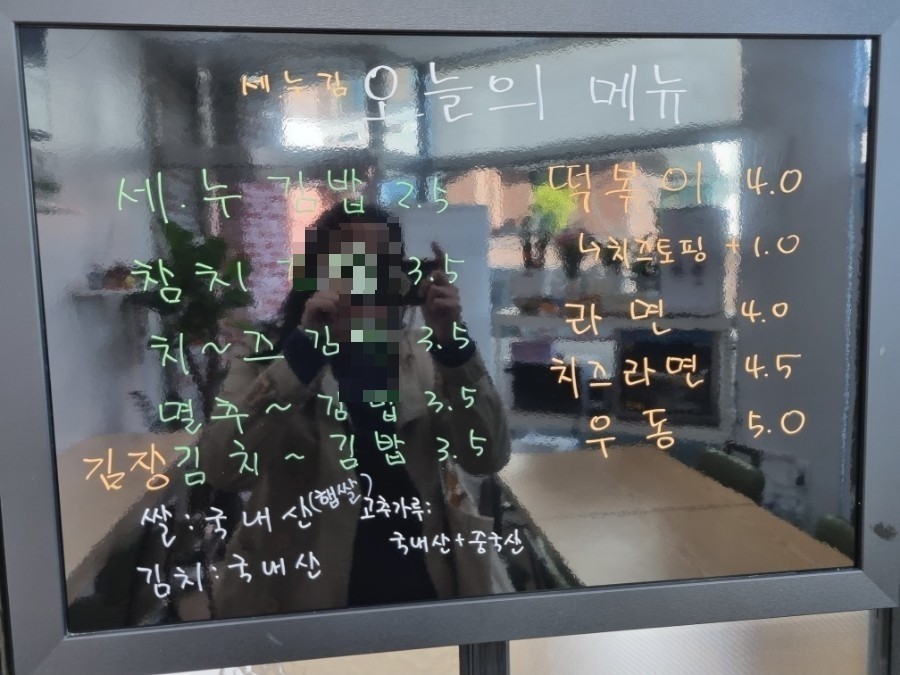 세.누.김 오늘의 메뉴
세.누 김밥 2.5
참치 3.5
치~즈 김 3.5
멸추~ 김밥 3.5
김장김치~ 김밥 3.5
쌀:국내산(햅쌀)
김치:국내산
고추가루:
국내산+중국산
떡볶이 4.0
↳치즈토핑 +1.0
라면 4.0
치즈라면 4.5
우동 5.0